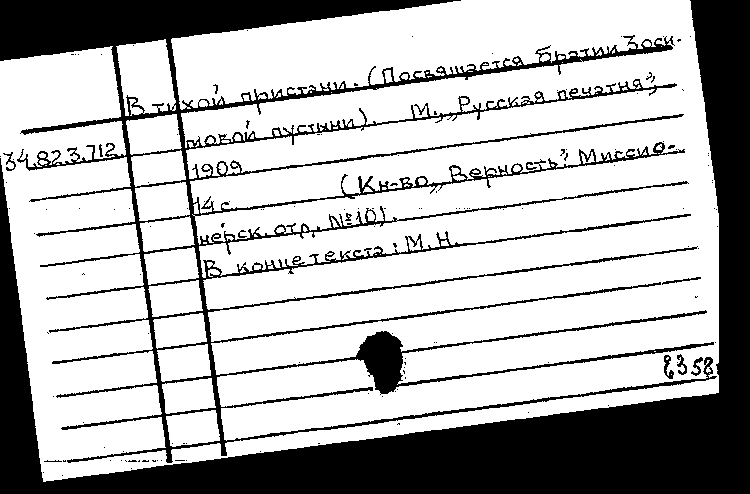 В тихой пристани. (Посвящается братии Зоси-
мовой пустыни). М., „Русская печатня",
34.82.3.712.
1909.
14 с. (Кн-во „Верность". Миссио-
нерск. отд. №10).
В конце текста: М.Н.
6358